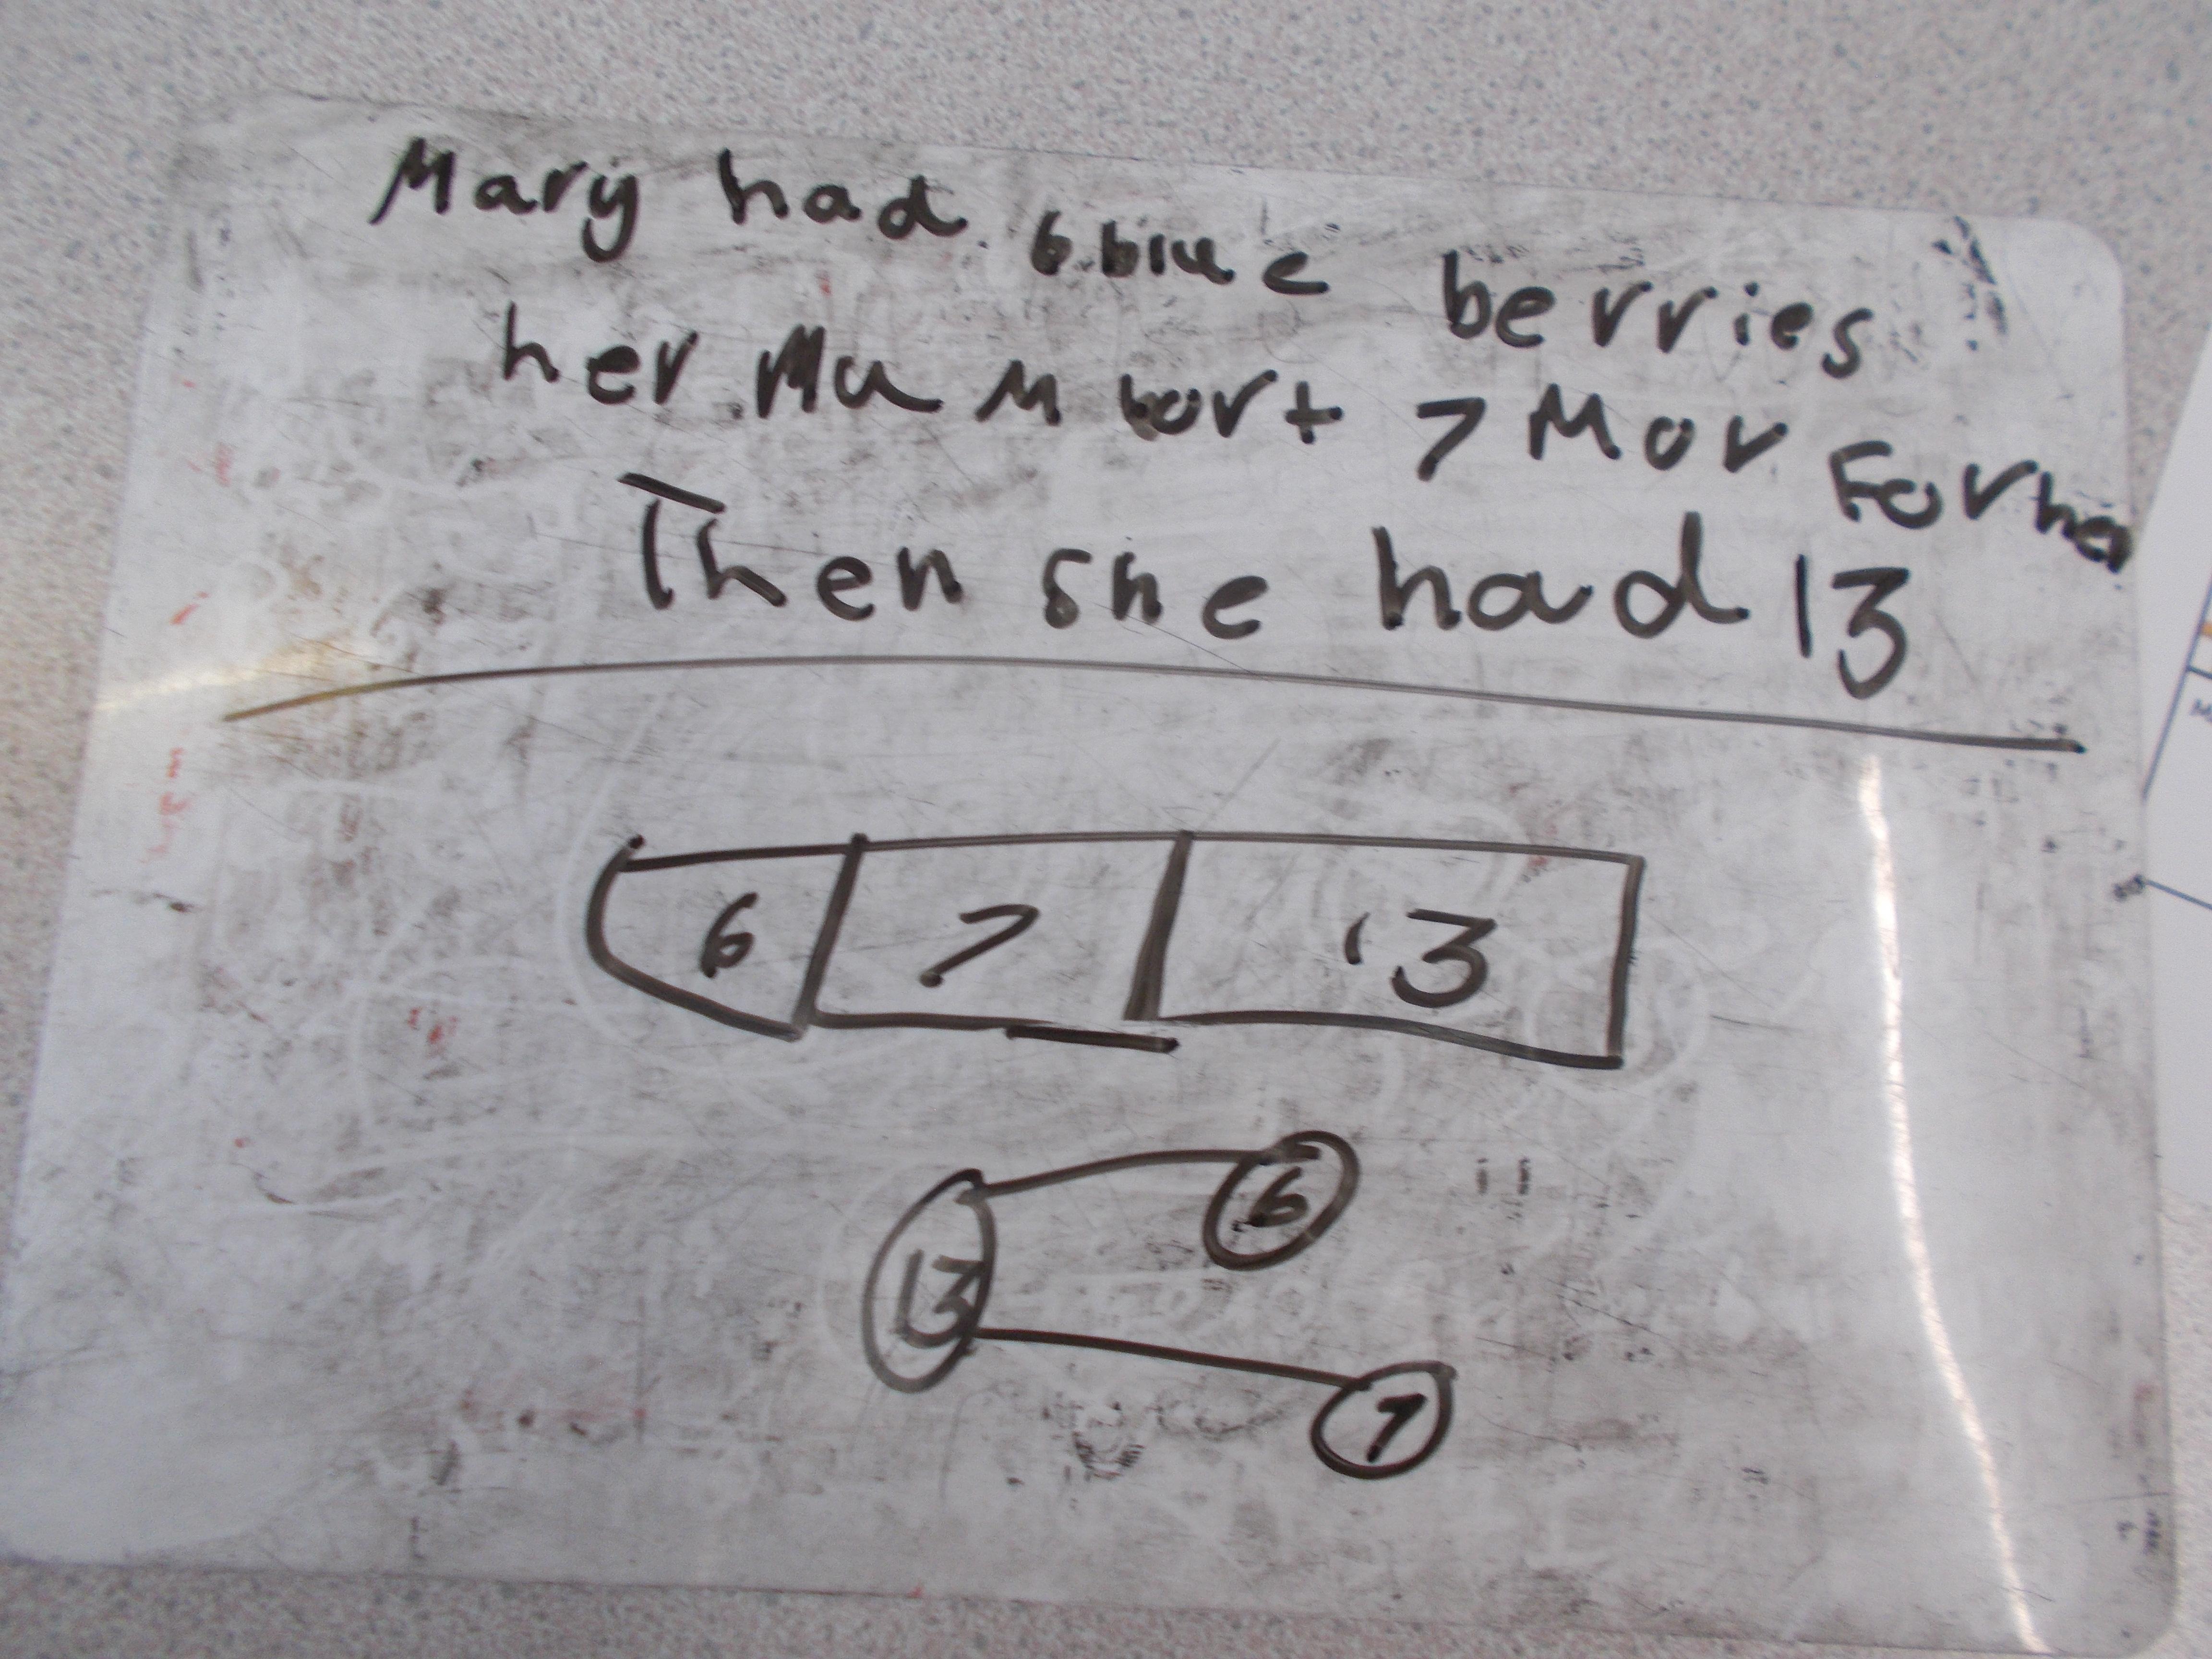 Mary had 6 blue berries
her Mum bort 7 Mor For her
Then she had 13
6 7 13
6
13
7